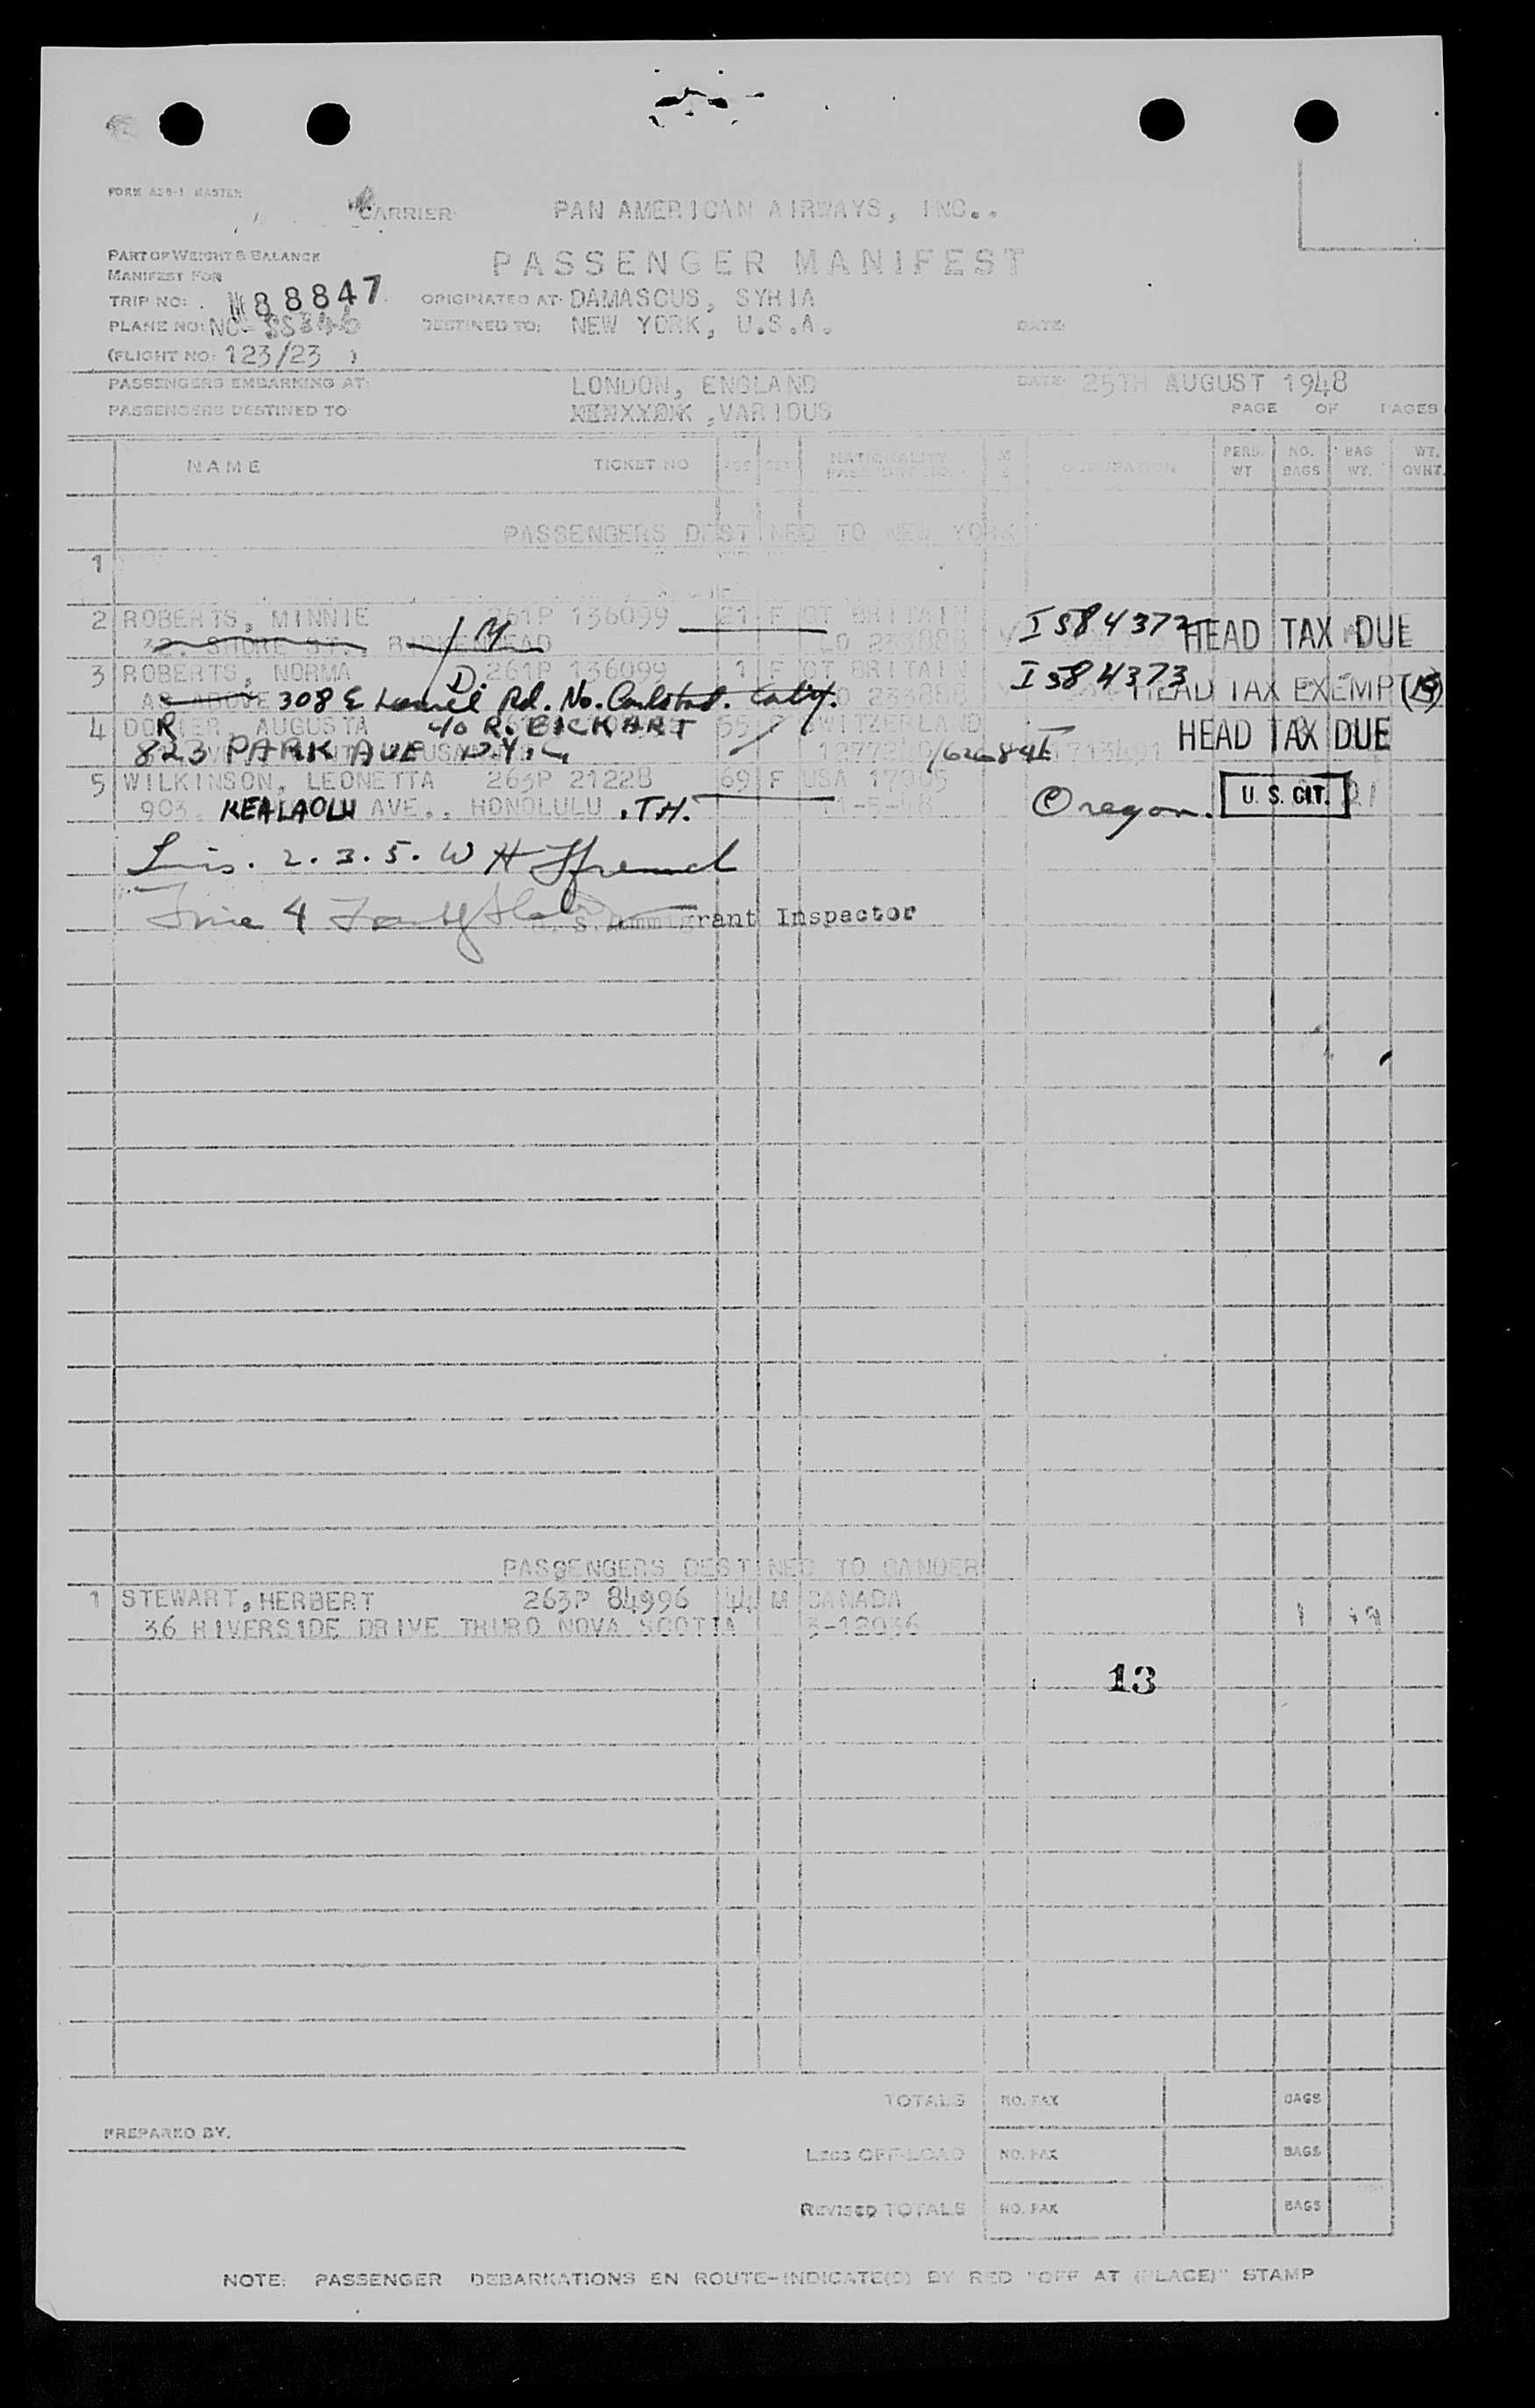 FORM AS8-1 MASTER
CARRIER PAN AMERICAN AIRWAYS, INC..
PART OF WEIGHT & BALANCE
MANIFEST FOR
PASSENGER MANIFEST
TRIP NO: 88847 ORIGINATED AT: DAMASCUS, SYRIA
PLANE NO: NC- DESTINED TO: NEW YORK, U.S.A. DATE:
(FLIGHT NO: 123/23 )
PASSENGERS EMBARKING AT: LONDON, ENGLAND DATE: 25TH AUGUST 1948
PASSENGERS DESTINED TO ,VARIOUS PAGE OF PAGES
NAME TICKET NO AGE SEX NATIONALITY PASSPORT NO. M S OCCUPATION PERS. WT NO. BAGS BAG WT. WT. OVHT.
PASSENGERS DESTINED TO NEW YORK
1
2 ROBERTS, MINNIE 261P 136099 21 F GT BRITAIN I 584372 HEAD TAX DUE
32. SHORE ST., BIRKENHEAD LO 233888
3 ROBERTS, NORMA 261P 136099 1 F GT BRITAIN I 584373 HEAD TAX EXEMPT
AS ABOVE 308 E Rd. No. Calif. LO 233888
4 AUGUSTA c/o R. BICKART 55 F SWITZERLAND HEAD TAX DUE
823 PARK AVE N.Y.C.
5 WILKINSON, LEONETTA 263P 21228 69 F USA 17005 Oregon. U. S. CIT.
903. KEALAOLU AVE., HONOLULU .T.H.
Lins. 2. 3. 5. W H
Line 4 U. S. Immigrant Inspector
PASSENGERS DESTINED TO GANDER
1 STEWART, HERBERT 263P 84996 44 M CANADA 1 19
36 RIVERSIDE DRIVE TRURO NOVA SCOTIA 3-12036
13
TOTALS NO. PAX BAGS
PREPARED BY.
LESS OFF-LOAD NO. PAX BAGS
REVISED TOTALS NO. PAX BAGS
NOTE: PASSENGER DEBARKATIONS EN ROUTE-INDICATE(D) BY RED "OFF AT (PLACE)" STAMP